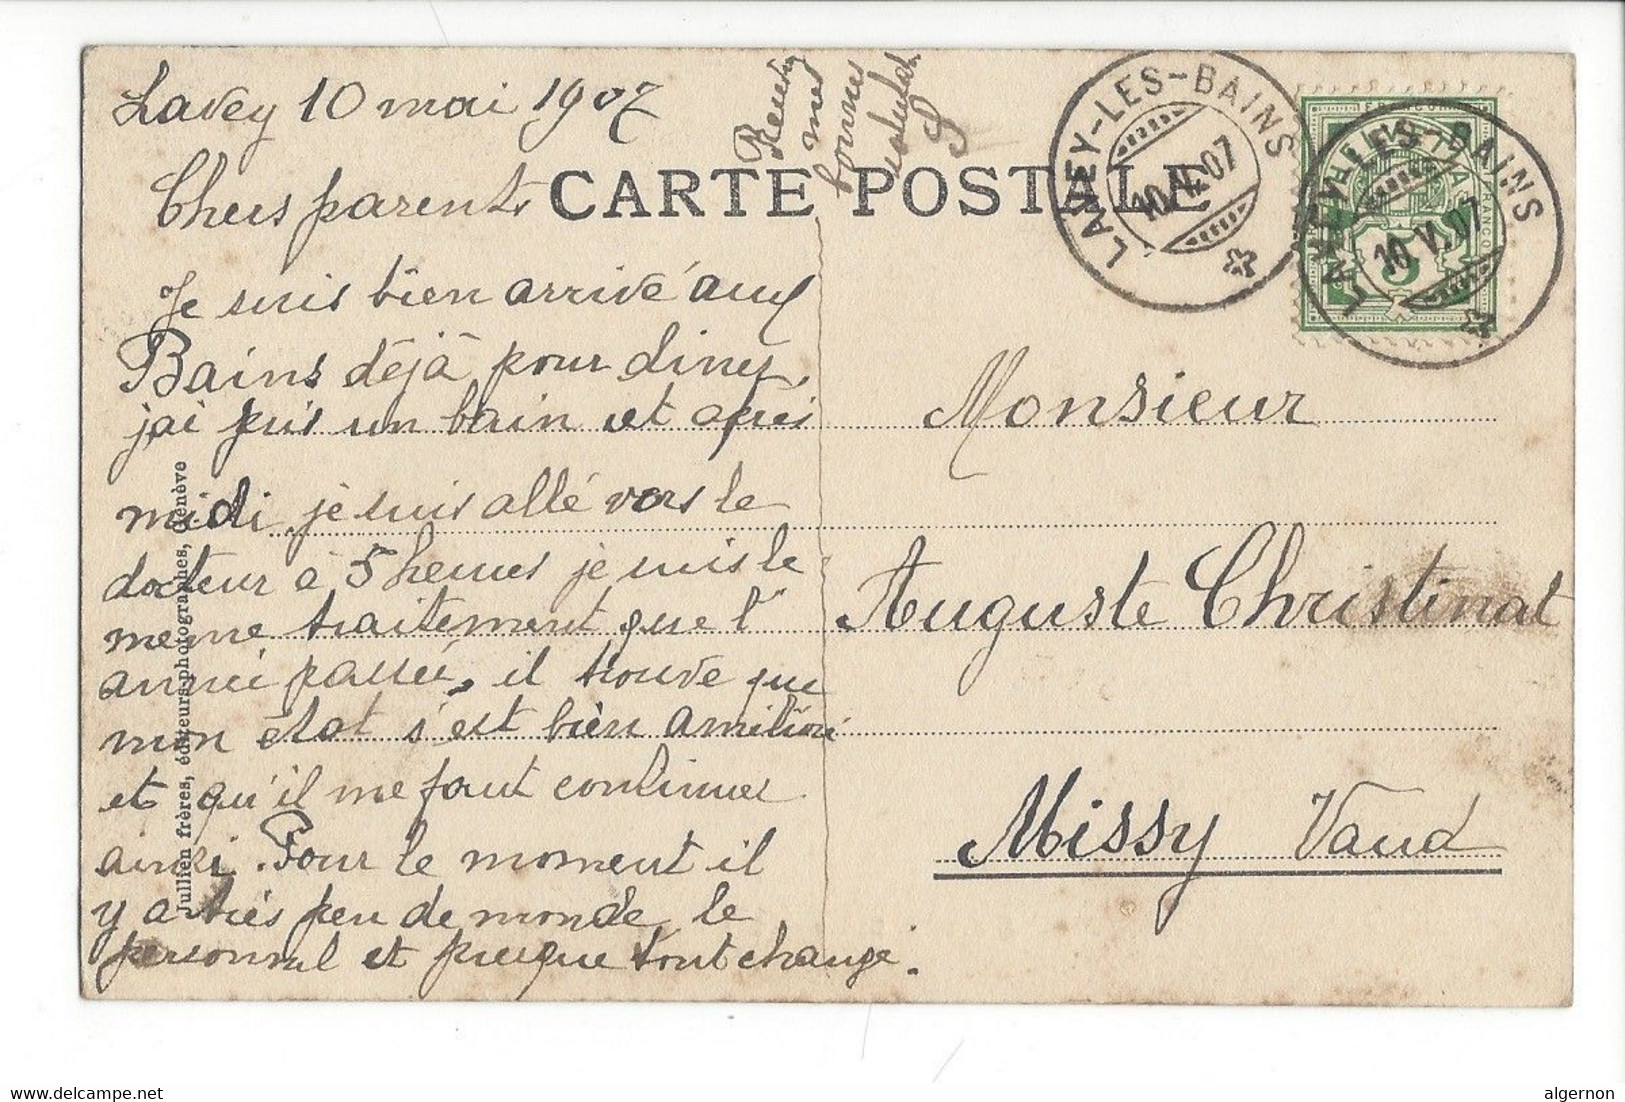 Lavey 10 mai 1907
Chers parents
Je suis bien arrivé aux
Bains déjà pour diner,
jai pris un bain et après
midi je suis allé vers le
docteur à 5 heures je suis le
meme traitement que l'
année passée, il trouve que
mon état s'est bien amélioré
et qu'il me faut continuer
ainsi. Pour le moment il
y a très peu de monde, le
personnal et presque tout changé.
mes
bonnes
CARTE POSTALE
LAVEY-LES-BAINS
10.V.07
LAVEY-LES-BAINS
10.V.07
FRANCO
5
Monsieur
Auguste Christinat
Missy Vaud
Jullien frères, éditeurs-photographes, Genève
www.delcampe.net
algernon